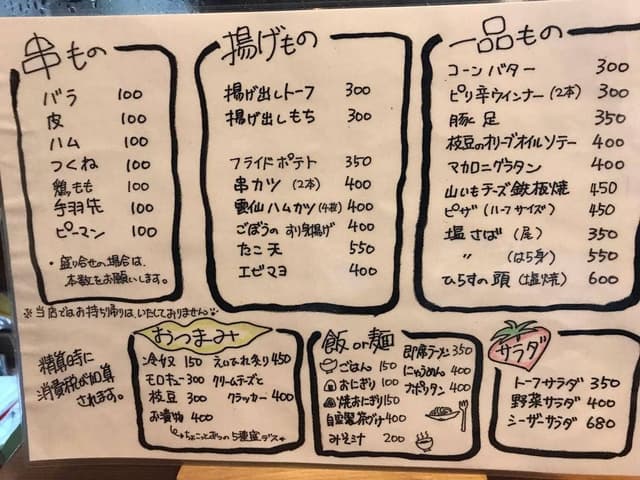 串もの
バラ 100
皮 100
ハム 100
つくね 100
鶏もも 100
手羽先 100
ピーマン 100
・盛り合せの場合は、
本数もお願いします。
揚げもの
揚げ出しトーフ 300
揚げ出しもち 300
フライドポテト 350
串カツ (2本) 400
雲仙ハムカツ(4枚) 400
ごぼうのすり身揚げ 400
たこ天 550
エビマヨ 400
一品もの
コーンバター 300
ピリ辛ウインナー(2本) 300
豚足 350
枝豆のオリーブオイルソテー 400
マカロニグラタン 400
山いもチーズ鉄板焼 450
ピザ (ハーフサイズ) 450
塩さば (尾) 350
〃 (はら身) 550
ひらすの頭 (塩焼) 600
※当店ではお持ち帰りは、いたしておりません。
精算時に
消費税が加算
されます。
おつまみ
冷奴 150
モロキュー 300
枝豆 300
お漬物 400
えいひれ炙り 450
クリームチーズと
クラッカー 400
飯 or 麺
ごはん 150
おにぎり 100
焼おにぎり 150
自家製茶づけ 400
みそ汁 200
即席ラーメン 350
にゅうめん 400
ナポリタン 400
サラダ
トーフサラダ 350
野菜サラダ 400
シーザーサラダ 680